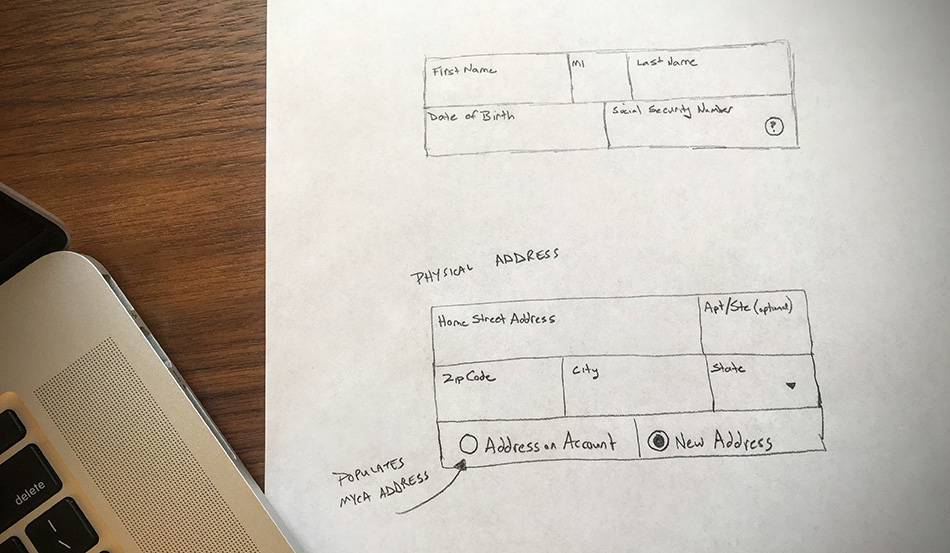 First Name MI Last Name
Date of Birth Social Security Number ?
PHYSICAL ADDRESS
Home Street Address Apt/Ste (optional)
Zip Code City State
Address on Account New Address
POPULATES
MYCA ADDRESS
delete